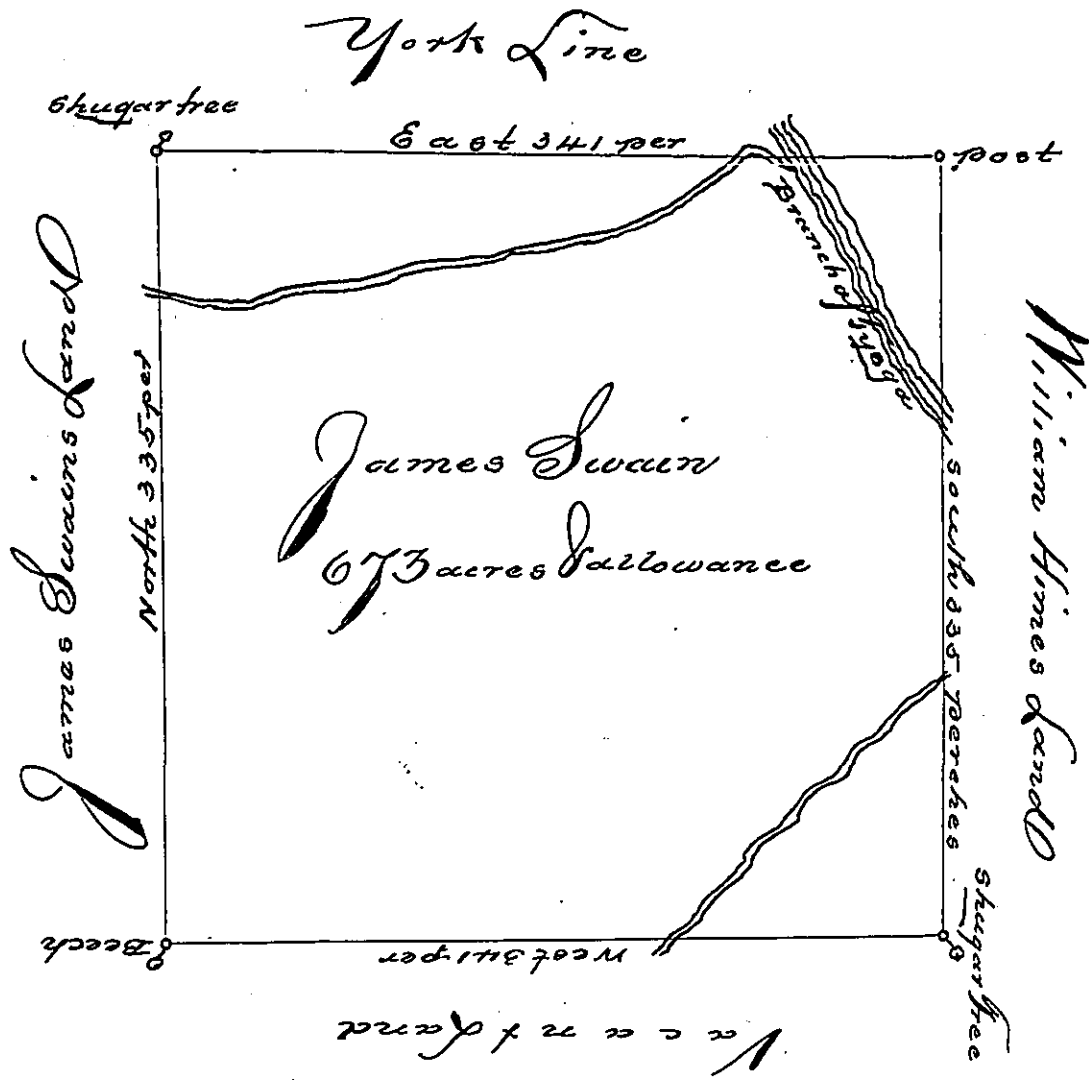 York Line
Shugar tree
East 341 per
post
Branch of Tyoga
James Swains Land
North 335 per
James Swain
673 acres & allowance
South 335 perches
William Himes Land
Shugar Tree
Beech
West 341 per
Vacant Land